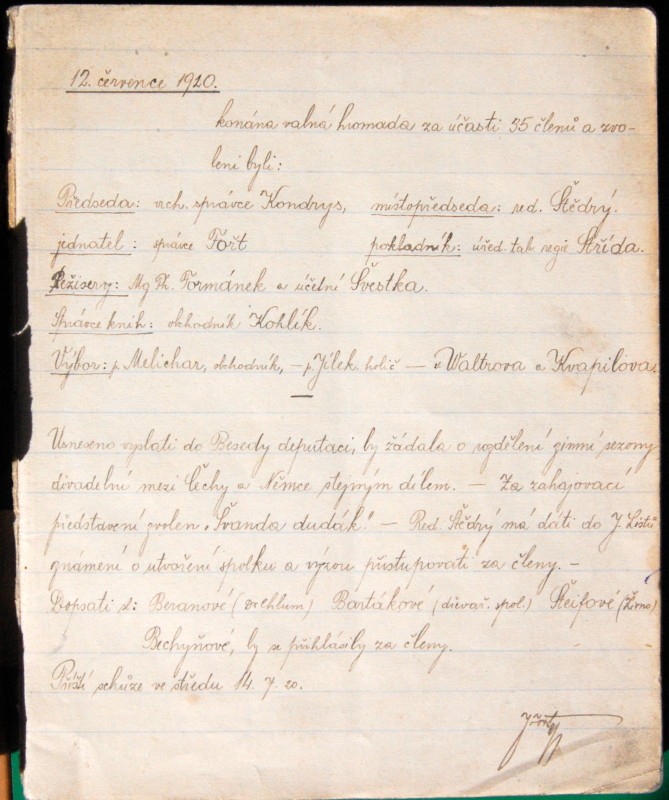 12. července 1920.
konána valná hromada za účasti 35 členů a zvo-
leni byli:
Předseda: vrch. správce Kondrys, místopředseda: red. Štědrý.
jednatel: správce Fořt pokladník: úřed. tab. regie Střída.
Režisery: Mg Ph. Formánek a účetní Švestka.
Správce knih: obchodník Kohlík.
Výbor: p. Melichar, obchodník, — p. Jílek holič — Waltrova a Kvapilova.
Usneseno vyslati do Besedy deputaci, by žádala o rozdělení zimní sezony
divadelní mezi Čechy a Němce stejným dílem. — Za zahajovací
představení zvolen „Švanda dudák". — Red. Štědrý má dáti do J. Listů
známení o utvoření spolku a výzvu přistupovati za členy. —
Dopsati sl: Beranové (Vrchlum) Bartákové (dřevař. spol.) Šteifové
Bechyňové, by se přihlásily za členy.
Příští schůze ve středu 14. 7. 20.